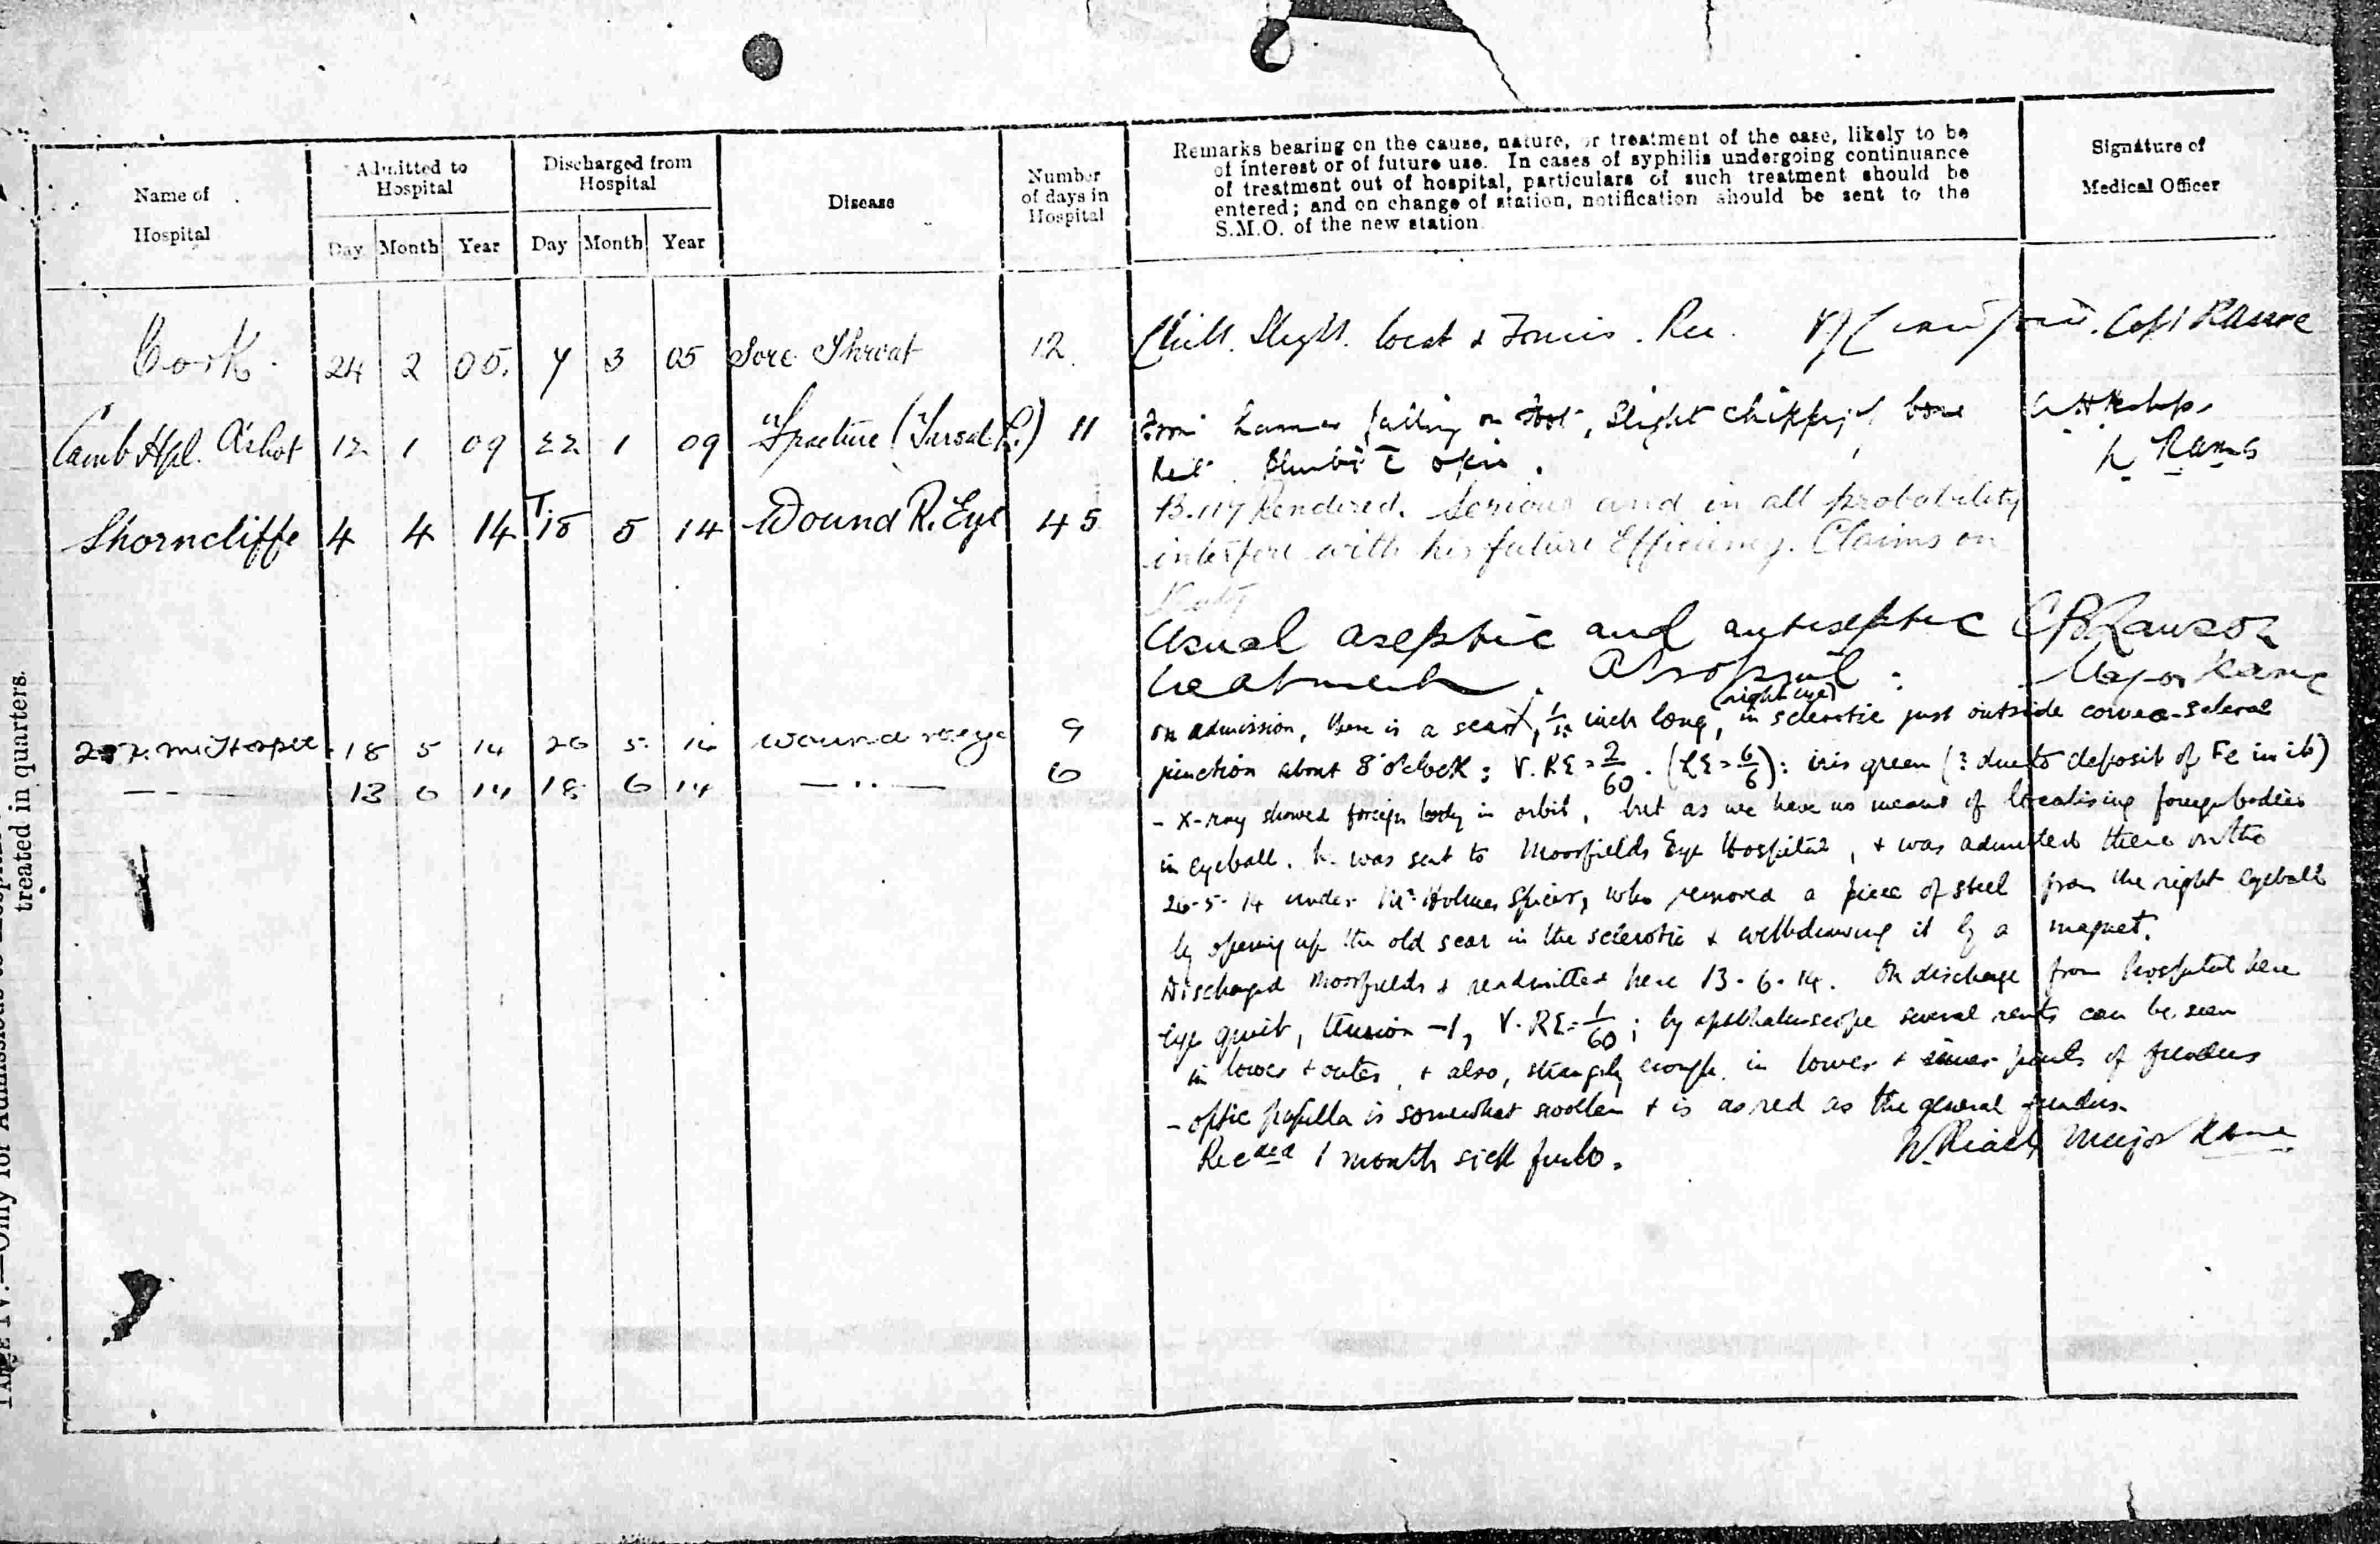 Name of
Hospital
Admitted to
Hospital
Day Month Year
Discharged from
Hospital
Day Month Year
Disease
Number
of days in
Hospital
Remarks bearing on the cause, nature, or treatment of the case, likely to be
of interest or of future use. In cases of syphilis undergoing continuance
of treatment out of hospital, particulars of such treatment should be
entered; and on change of station, notification should be sent to the
S.M.O. of the new station.
Signature of
Medical Officer
Cork 24 2 05 7 3 05 Sore Throat 12 Chill. Slight. Rec. Capt RAMC
Camb Hpl. A'shot 12 1 09 22 1 09 Fracture (Tarsal) 11 From hammer falling on foot, slight chipping of bone
Rest.
Shorncliffe 4 4 14 T. 18 5 14 Wound R. Eye 45 B.117 Rendered. Serious and in all probability
interfere with his future Efficiency. Claims on
Duty
Usual aseptic and antiseptic
treatment. Major RAMC
(right eye)
M. Hospl 18 5 14 26 5 14 Wound 9 on admission, there is a scar, inch long, in sclerotic just outside corneo-scleral
13 6 14 18 6 14 — " — 6 junction about 8 o'clock: V.RE = 2/60. (LE = 6/6): iris green (? due to deposit of Fe in it)
- X-ray showed foreign body in orbit, but as we have no means of localising foreign bodies
in eyeball, he was sent to Moorfields Eye Hospital, & was admitted there on the
26-5-14 under Mr Holmes Spicer, who removed a piece of steel from the right eyeball
by opening up the old scar in the sclerotic & withdrawing it by a magnet.
Discharged Moorfields & readmitted here 13-6-14. On discharge from hospital here
eye quiet, tension -1, V.RE = 1/60; by ophthalmoscope several rents can be seen
in lower & outer, & also, strangely enough, in lower & inner parts of fundus
- optic papilla is somewhat swollen & is as red as the general fundus.
Rec ded 1 month sick furlo. Major RAMC
treated in quarters.